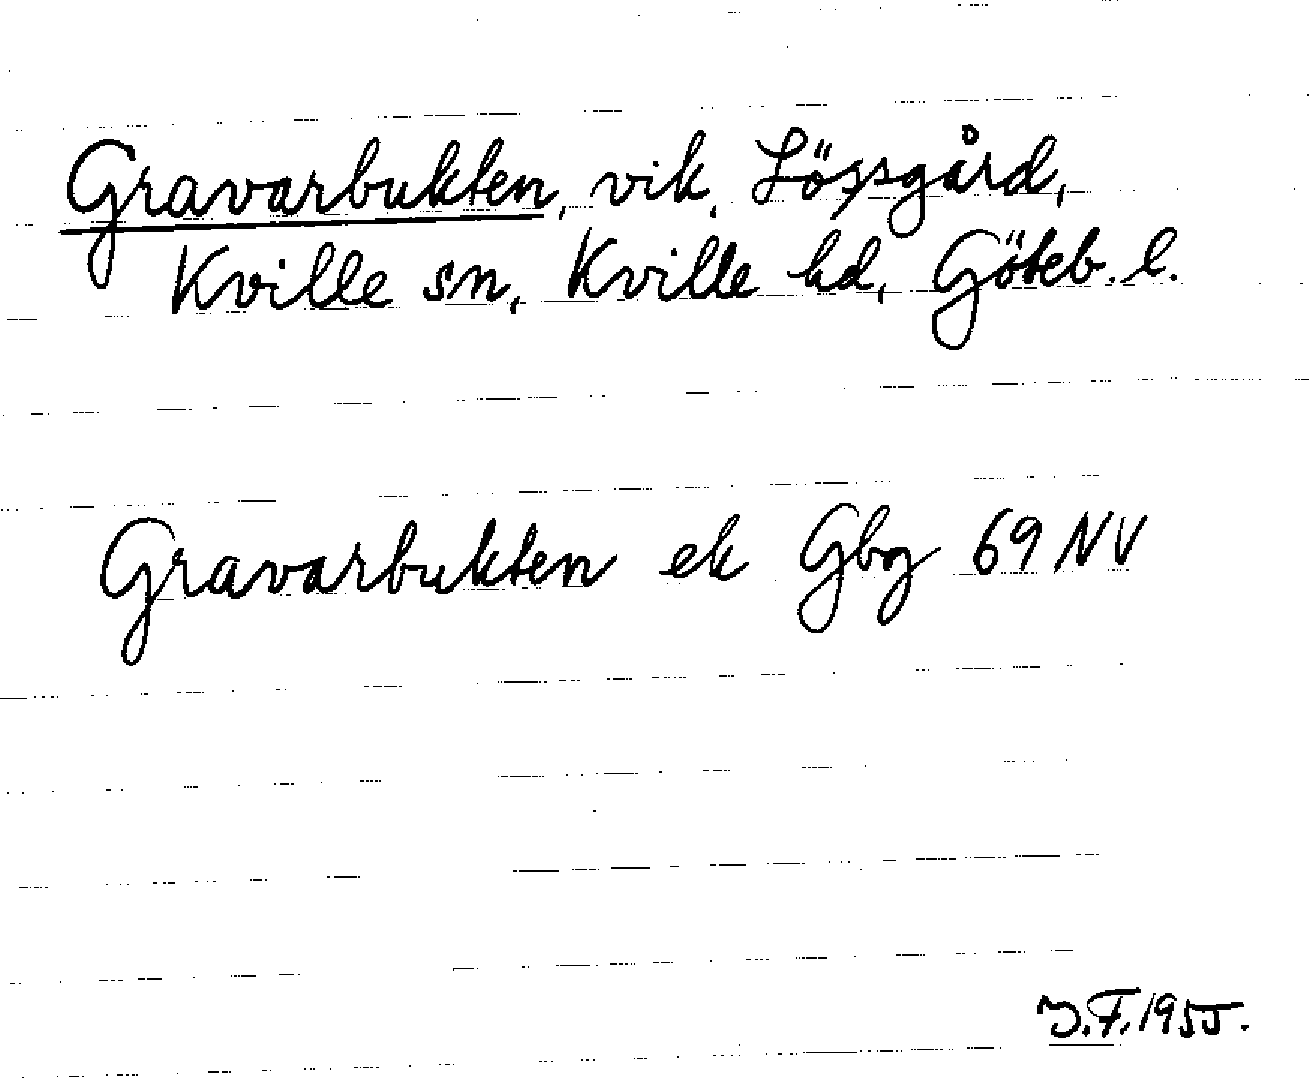 Gravarbukten, vik, Lössgård,
Kville sn, Kville hd, Göteb. l.
Gravarbukten ek Gbg 69 NV
J.F. 1955.